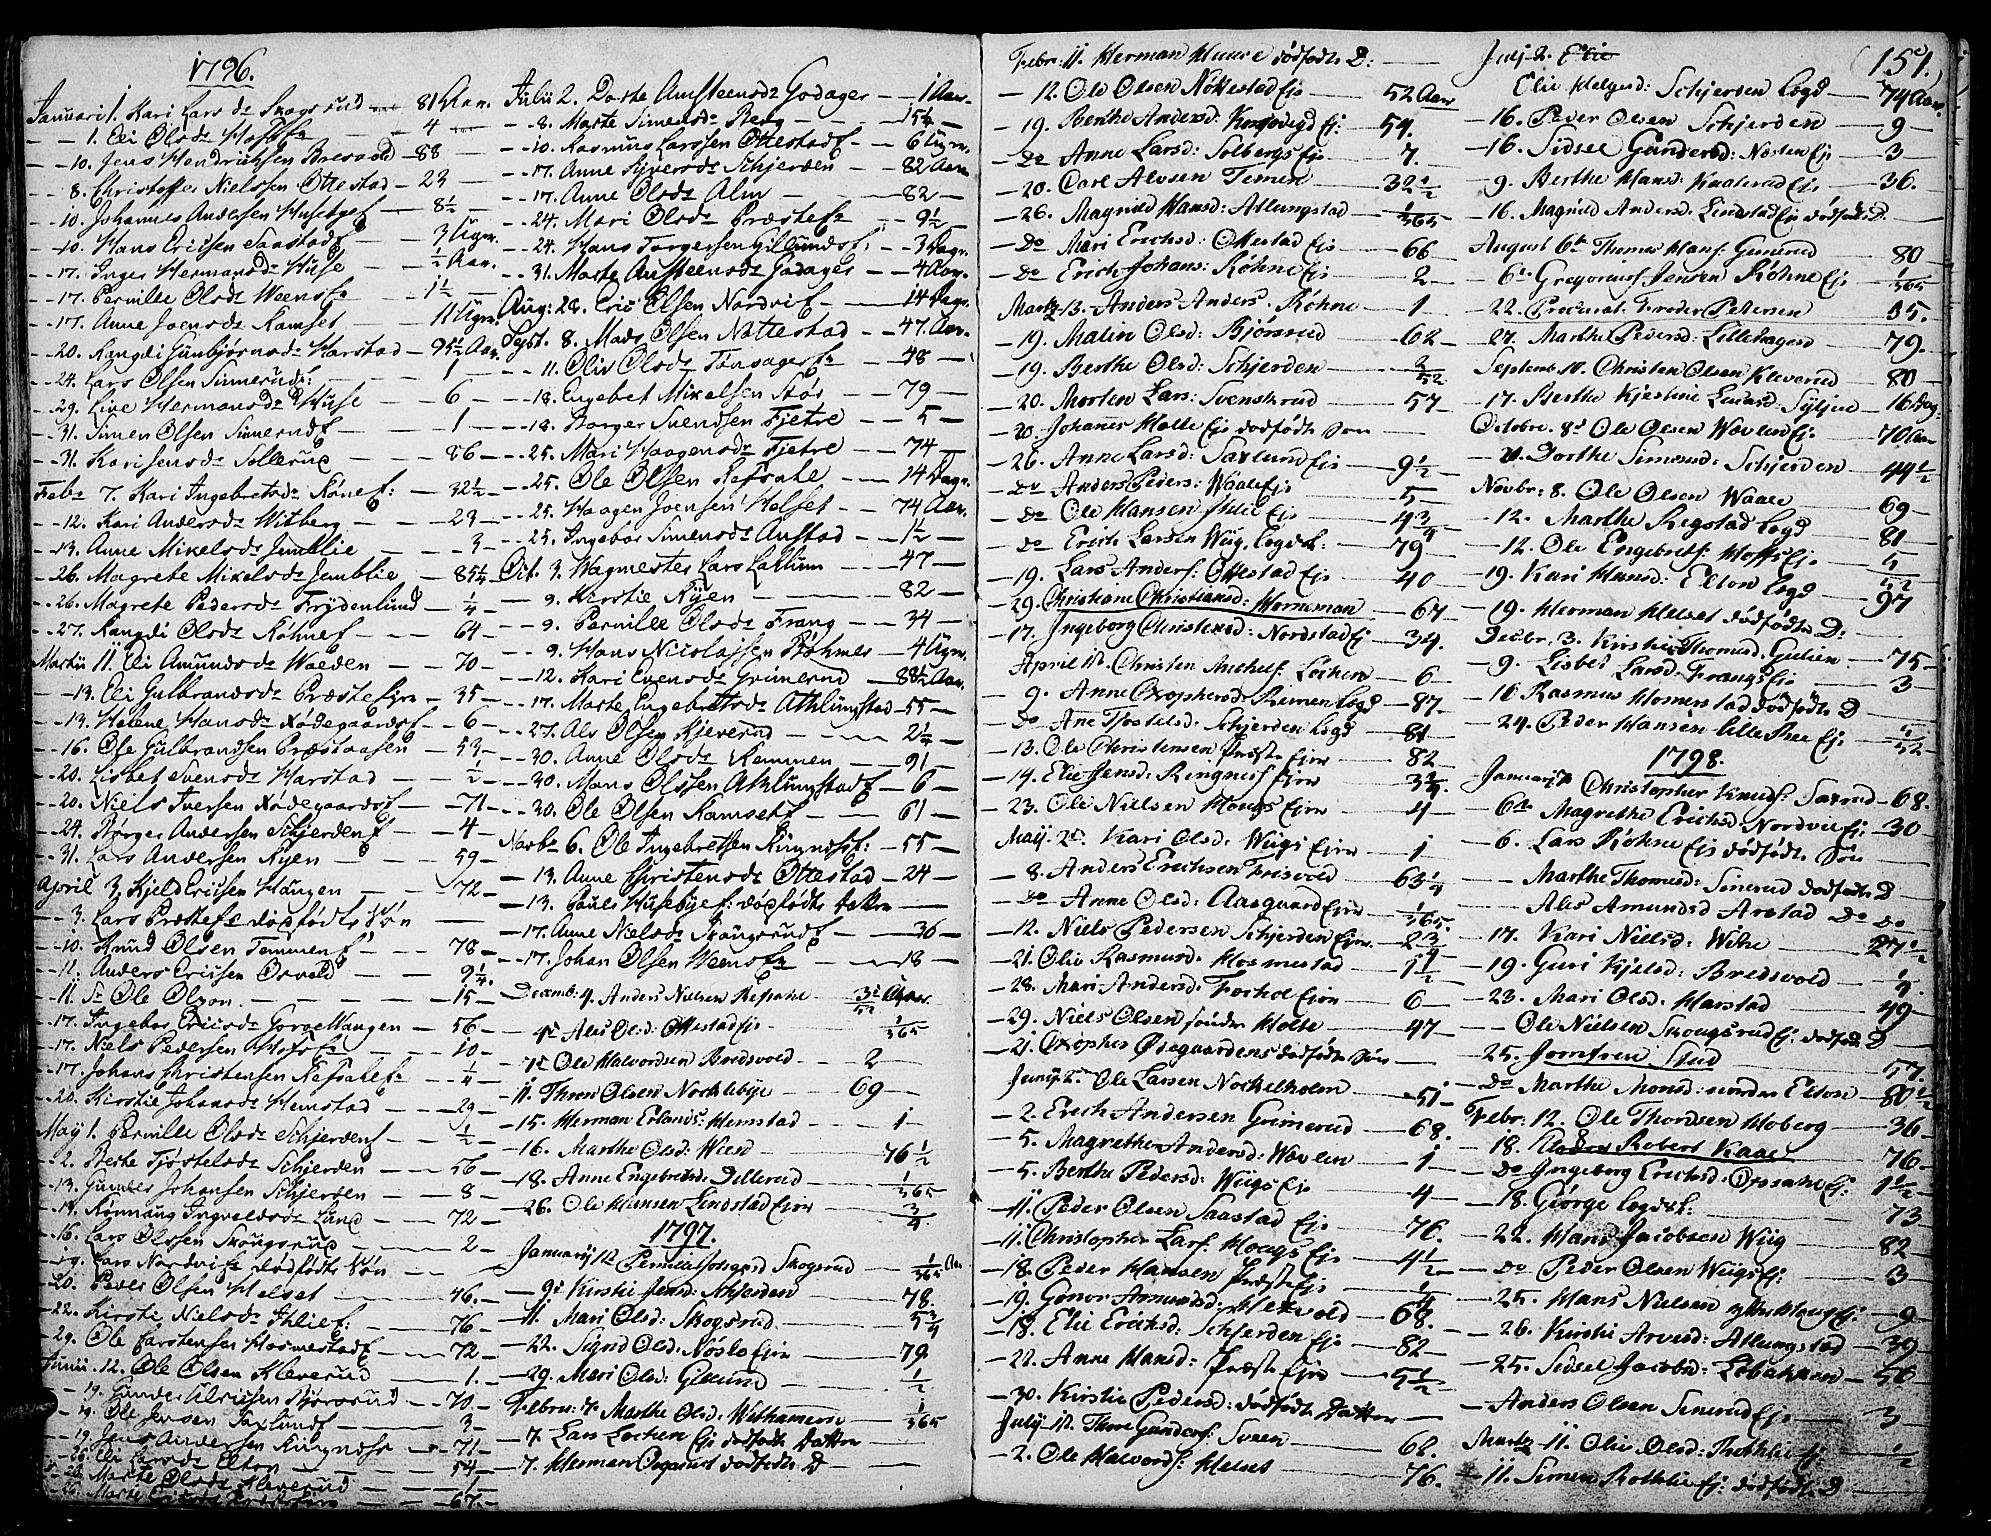 1796.
Januari 1. Kari Lars dr Skogsrud — 81 Aar.
— 1. Eli Olsdr Hoff — 4
— 10. Jens Hendrichsen Bresvold — 88
— 8. Christoffer Nielssen Ottestad — 23
10. Johannes Andersen — 8½
— 10. Hans Ericsen Saastad — 3 Ugr.
— 17. Inger Hermansdr Huse — ½ Aar.
— 17. Pernille Olsdr — 1½
— 17. Anne Joensdr Ramset — 11 Ugr.
— 20. Rangdi Gunbjørnsdr Harstad — 95½ Aar
— 24. Lars Olsen Simerud — 1
— 29. Live Hermansdr Huse — 6
— 31. Simen Olsen Simerud — 1
— 31. Kari Jensdr Sollerud — 86
Febr 7. Kari Ingebretsdr — 32½
— 12. Kari Andersdr Witberg — 23
— 13. Anne Mikelsdr Jemblie — 3
— 26. Magrete Mikelsdr Jemblie — 85¼
— 26. Magrete Pedersdr Frydenlund — ¼
— 27. Rangdi Olsdr Røhne — 64
Martii 11. Eli Amundsdr Waeden — 70
— 13. Eli Gulbrandsdr Præste — 35
— 13. Helene Hansdr Nodegaards — 6
— 16. Ole Gulbrandsen — 53
— 20. Lisbet Svensdr Harstad — ½
— 20. Niels Iversen Nodegaards — 71
— 24. Børger Andersen Schjerden — 4
— 31. Lars Andersen Ryen — 59
April 3. Kjeld Ericsen Haugen — 72
— 3. Lars Præste dødfødte Søn
— 10. Knud Olsen Temmen — 78
— 11. Anders Ericsen — 9¼
— 11. Ole Olson — 15
— 17. Ingebor Ericsdr Gorge Haugen — 56
— 17. Niels Pedersen — 10
— 17. Johans Christensen Refsahl — ¼
— 20. Kirstie Johansdr Hemstad — 29
May 1. Pernille Olsdr Schjerden — ½
— 2. Berte Tjøstelsdr Schjerden — 56
— 13. Gunder Johansen Schjerden — 8
— 14. Rønnaug Ingvaldsdr Lund — 72
— 16. Lars Olssen Skougsrud — 2
— 19. Lars Nordvi dødfødte Søn
— 20. Peder Olsen Helset — 76
— 22. Kirsti Nielsdr Ihlie — 76
— 29. Ole Carstensen Hosmestad — 72
Junii 12. Ole Olsen Kleverud — 1
— 19. Gunder Ulrichsen Bjørnerud — 70
— 19. Ole Jensen Saxlund — 3
— 19. Jens Andersen Ringnes — 71
— 26. Eli Larsdr Elton — 54
— 26. Marte Olsdr Kleverud — 1
— 26. Marte — 67
Julii 2. Dorte Amsteensdr Godager — 1 Aar.
— 8. Marte Simensdr Berg — 15¼
— 10. Rasmus Larssen Ottestad — 6 Ugr.
— 17. Anne Syversdr Schjerden — 82 Aar
— 17. Anne Olsdr Alm — 82
— 24. Mari Olsdr Præste — 9½
— 24. Hans Torgersen Gillunds — 3 Dage
— 31. Marte Amsteensdr Godager — 4 Aar.
Aug: 28. Eric Olsen Nordvi — 14 Dage.
Sept. 8. Mads Olsen Nøttestad — 47 Aar.
— 11. Oliv Olsdr Tønsager — 48
— 18. Engebet Mikelsen Stor — 79
— 18. Børger Svendsen Fjetre — 5
— 25. Mari Haagensdr Fjetre — 74
— 25. Ole Olsen Refsahl — 14 Dage.
— 25. Haagen Joensen Helset — 74 Aar.
— 25. Ingebor Simensdr Austad — 1½
Oct. 3. Wagmester Lars Lallum — 47
— 9. Kirstie Ryen — 82
— 9. Pernille Olsdr Frang — 34
— 9. Hans Nicolajsen Røhnes — 4 Ugr.
— 12. Kari Evensdr Grimerud — 88½ Aar.
— 17. Marte Engebretsdr Athlungstad — 55
— 27. Als Olsen Kjeverud — 2¼
— 30. Anne Olsdr Remmen — 91
— 30. Hans Olssen Athlungstad — 6
— 30. Ole Olsen Ramset — 61
Novbr 6. Ole Ingebretsen Ringnes: — 55
— 13. Anne Christensdr Ottestad — 24
— 13. Pauls Husebye: dødfødte Datter
— 17. Anne Nielsdr Skougsrud — 36
— 17. Johan Olsen — 18
Decemb: 4. Anders Nielsen Refsahl — 3/52 Aar
4de Ales Olsd: Ottestad Eje — 1/365
— 7de Ole Halvordsen Bredsvold — 2
— 11. Thron Olsen Nocklebye — 69
— 15. Herman Erlands: Hemstad — 1
— 16. Marthe Olsd: Weed — 76½
— 18. Anne Engebretsd: Dellerud — 1/365
— 26. Ole Hansen Lindstad Ejen — ¾
1797.
Januarij 1te Pernille Skogsrud — 1/365 Aar
— 9de Kirsti Jensd: Schjerden — 78
— 11. Mari Olsd: Skogsrud — 5¾
— 22. Sigrid Olsd: Eje — 79
— 29. Mari Olsd: Gillund — ½
Febru: 7. Marthe Olsd: Withammer — 1/365
— 7. Lars Lochen Eje dødfødte Datter
— 7. Herman dødfødte D
Febr: 11. Herman Huuse dødfødte D:
— 12. Ole Olsen Nøttestad Eje — 52 Aar
— 19. Berthe Andersd: Eje — 54.
— do Anne Larsd: Solbergs Eje — 7.
— 20. Carl Alvsen Temen — 32½
— 26. Magnild Hansd: Atlungstad — 1/365
— do Mari Erichsd: Ottestad Eje — 66
— do Erich Johans: Røhne Eje — 2
Martz 13. Anders Anders. Røhne — 1
— 19. Malin Olsd: Bjørnrud — 62
— 19. Berthe Olsd: Schjerden — 2/52
— 20. Morten Lars: Svenskrud — 57
— 20. Johannes Holte Eje dødfødte Søn
— 26. Anne Larsd: Saxlund Eje — 9½
— do Anders Peders: Waale Eje — 5
— do Ole Hansen Ihlie Eje — 4¾
— do Erich Larsen Wug. Logd. — 79
— 19. Lars Anders: Ottestad Eje — 40
— 29. Christiane Christiansd: Horneman — 67
— 17. Ingeborg Christensd: Nordstad Ej — 34.
April 1te Christen Michels Lochen — 6
— 9. Anne Remen Logd — 87.
— do Ane Tjostelsd: Schjerden Logd — 81
— 13. Ole Christensen Præste Ejen — 82
— 14. Elie Jensd: Ringnes Ejen — 3¾
— 23. Ole Nielsen Hougs Ejen — 4
Maij 2de Kari Olsd: Wugs Ejen — 1
— 8. Anders Erichsen Frisvold — 63¼
— do Anne Olsd: Aasgaard Ejen — 1/365
— 12. Niels Pedersen Schjerden Ejen — 2¾
— 21. Oliv Rasmusd: Hosmestad — 1½
— 28. Mari Andersd. Fockol Ejen — 6
— 29. Niels Olsen søndre Holte — 47
— 21. Østgaardens dødfødte Søn
Junij 2de Ole Larsen Nockelholm — 51
— 2. Erich Andersen Grimerud — 68.
— 5. Magrethe Andersd: Wovlen — 1
— 5. Berthe Pedersd: Wugs Eje — 4
— 11. Peder Olsen Saastad Eje — 76.
— 11. Christopher Lars: Hougs Eje — 4½
— 18. Peder Hansen Præste Eje — ¼
— 19. Gonor Amundsd: — 68.
— 18. Elie Ericksd: Schjerden Eje — 82
— 22. Anne Hansd: Præste Ejen — 5½
— 30. Kirstie Pedersd: dødfødte Datter
July 1te Thore Gunders: Sveen — 62.
— 2. Ole Halvords: Helset — 76.
(151.)
July 2. Elie
Elie Helgesd: Schjerden Logd — 74 Aar
— 16. Peder Olsen Schjerden — 9
— 16. Sidsel Gundersd: Eje — 3
— 9. Berthe Hansd: Knaterud Eje — 36.
— 16. Magnild Andersd. Lindstad Eje dødfødte D
August 6te Thomas Hans: Gunerud — 80
— 6te Gregorius Jensen Røhne Eje — 1/365
— 22. Procurat: Petersen — 35.
— 27. Marthe Pedersd: Lillehagen — 79.
Septemb. 10. Christen Olsen Kleverud — 80
— 17. Berthe Kjestine — 16 Dag
Octobr. 8de Ole Olsen Wovlen Eje — 70 Aar
— Dorthe Simensd: Schjerden — 44½
Novbr: 8. Ole Olsen Waale — 69
— 12. Marthe Regstad Logd — 81
— 12. Ole Engebrets: Hoffs Eje — 5
— 19. Kari Hansd: Elton Logd — 97
— 19. Herman Helset dødfødte D:
Decbr: 3. Kirstie Thomasd. Gulien — 75
— 9. Lisbet Larsd. Frangs Eje — 3
— 16 Rasmus Homerstad dødfødte D
— 24. Peder Hansen Eje
1798.
Januarij Christopher Knuds: Saxrud — 68.
— 6te Magrethe Ericksd Nordvi Ej. — 30
— 6. Lars Røhne Eje dødfødte Søn
— Marthe Thomasd: Simerud dødfødte D
— Ales Amundsd Arstad do do
— 17. Kari Nielsd: Withe — 27½
— 19. Guri Kjelsd: Bredsvold — ¼
— 23. Mari Olsd: Harstad — 49
— Ole Nielsen Skougsrud Ej. dødfødte D
— 25. Jomfrue Stud — 57.
— do Marthe Monsd: nordre Elton — 80½
Febr: 12. Ole Thordsen Hoberg — 36
— 18. Anders Robert Kaae — 76
— do Ingeborg Ericksd: Refsahl Ej: — 1½
— 18. George Logdst: — 73
— 22. Hans Jacobsen Wug — 82
— do Peder Olsen Wugs Ej: — 3
— 25. Hans Nielsen Houg Ej: — 9
— 26. Kirsti Arvesd: Atlungstad — 39
— 25. Sidsel Jacobsd: — 56
— Anders Olsen Simerud Eje — 3
Martz 11. Oliv Olsd: Rothlie Ej: — ½
— 11. Simen Rothlie Ej: dødfødte D